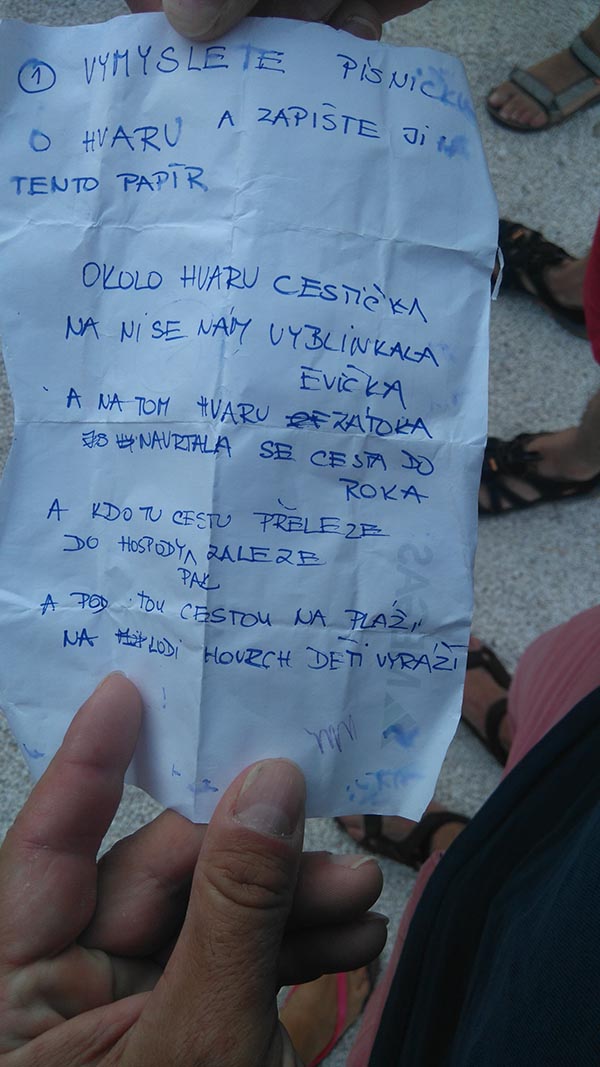 1 VYMYSLETE PÍSNIČKU
O HVARU A ZAPIŠTE JI
TENTO PAPÍR
OKOLO HVARU CESTIČKA
NA NI SE NÁM VYBLINKALA
EVIČKA
A NA TOM HVARU ZÁTOKA
NAVRTALA SE CESTA DO
ROKA
A KDO TU CESTU PŘELEZE
DO HOSPODY PAK ZALEZE
A POD TOU CESTOU NA PLÁŽI
NA LODI HOUFCH DĚTÍ VYRÁŽÍ